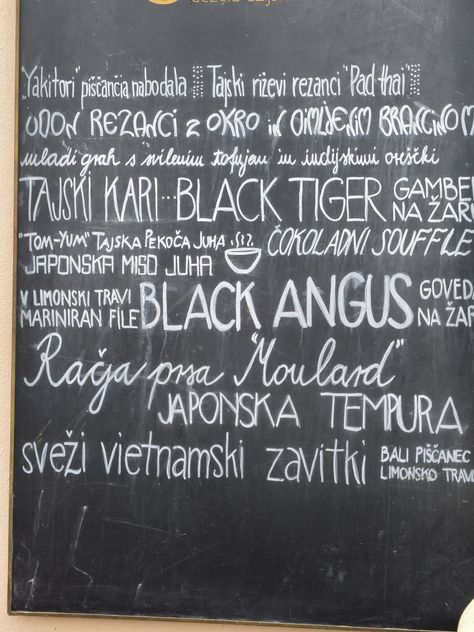 "Yakitori" piščančja nabodala Tajski riževi rezanci "Pad thai"
UDON REZANCI z OKRO in DIMLJENIM BRANCINOM
mladi grah s svilenim tofujem in indijskimi oreščki
TAJSKI KARI...BLACK TIGER GAMBE
NA ŽAR
"TOM-YUM" TAJSKA PEKOČA JUHA
JAPONSKA MISO JUHA
ČOKOLADNI SOUFFLE
V LIMONSKI TRAVI
MARINIRAN FILE
BLACK ANGUS GOVED
NA ŽAR
Račja prsa "Moulard"
JAPONSKA TEMPURA
sveži vietnamski zavitki
BALI PIŠČANEC
LIMONSKO TRAV